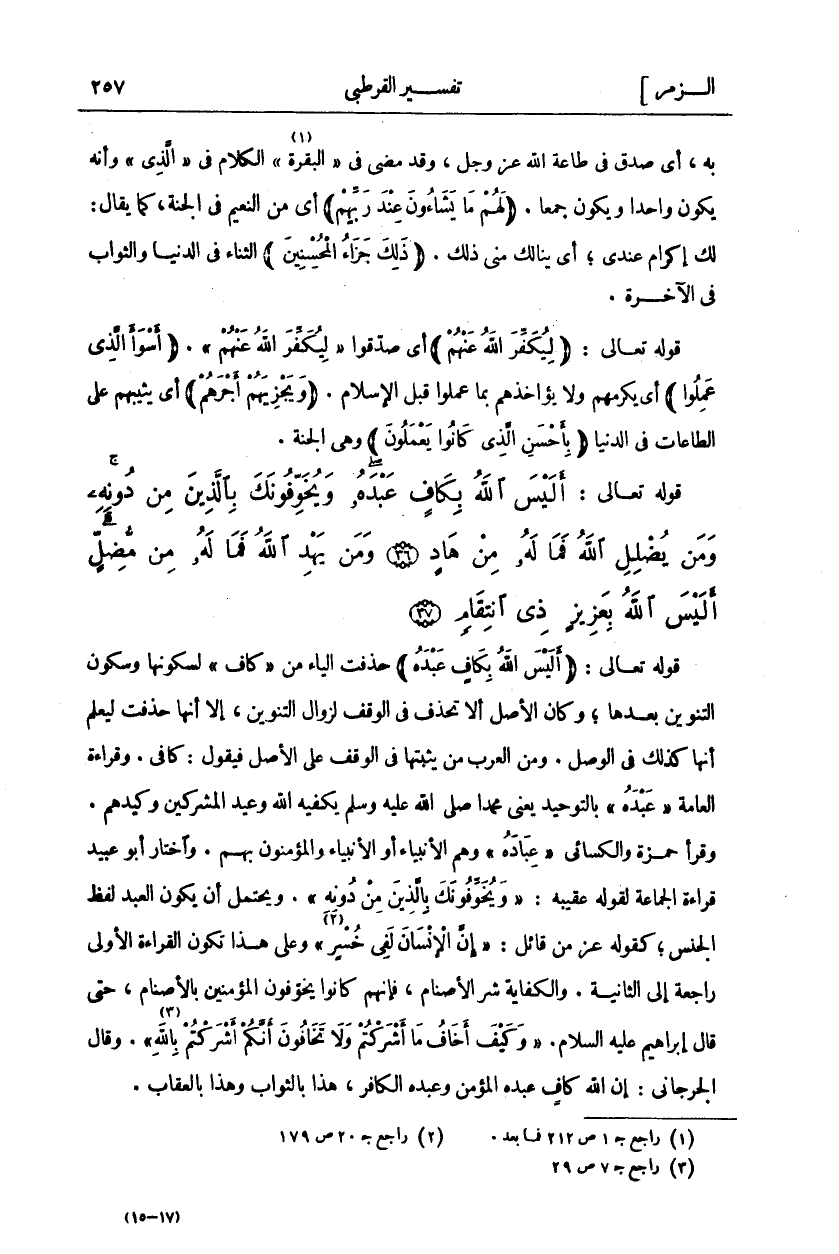 الـــزمر ] تفســـير القرطبى ٢٥٧
به ، أى صدق فى طاعة الله عز وجل ، وقد مضى فى « البقرة » (١) الكلام فى « الَّذِى » وأنه
يكون واحدا ويكون جمعا . ﴿لَهُمْ مَا يَشَاءُونَ عِنْدَ رَبِّهِمْ﴾ أى من النعيم فى الجنة، كما يقال:
لك إكرام عندى ؛ أى ينالك منى ذلك . ﴿ ذَلِكَ جَزَاءُ الْمُحْسِنِينَ ﴾ الثناء فى الدنيـا والثواب
فى الآخـــرة .
قوله تعـالى : ﴿ لِيُكَفِّرَ اللهُ عَنْهُمْ ﴾ أى صدّقوا « لِيُكَفِّرَ اللهُ عَنْهُمْ » . ﴿ أَسْوَأَ الَّذِى
عَمِلُوا ﴾ أى يكرمهم ولا يؤاخذهم بما عملوا قبل الإسلام . ﴿ وَيَجْزِيَهُمْ أَجْرَهُمْ ﴾ أى يثيبهم على
الطاعات فى الدنيا ﴿ بِأَحْسَنِ الَّذِى كَانُوا يَعْمَلُونَ ﴾ وهى الجنة .
قوله تعـالى : أَلَيْسَ ٱللَّهُ بِكَافٍ عَبْدَهُۥ وَيُخَوِّفُونَكَ بِٱلَّذِينَ مِن دُونِهِۦ ۚ
وَمَن يُضْلِلِ ٱللَّهُ فَمَا لَهُۥ مِنْ هَادٍ ﴿٣٦﴾ وَمَن يَهْدِ ٱللَّهُ فَمَا لَهُۥ مِن مُّضِلٍّ ۗ
أَلَيْسَ ٱللَّهُ بِعَزِيزٍ ذِى ٱنتِقَامٍ ﴿٣٧﴾
قوله تعـالى : ﴿ أَلَيْسَ اللهُ بِكَافٍ عَبْدَهُ ﴾ حذفت الياء من « كاف » لسكونها وسكون
التنوين بعـدها ؛ وكان الأصل ألا تحذف فى الوقف لزوال التنوين ، إلا أنها حذفت ليعلم
أنها كذلك فى الوصل . ومن العرب من يثبتها فى الوقف على الأصل فيقول : كافى . وقراءة
العامة « عَبْدَهُ » بالتوحيد يعنى محمدا صلى الله عليه وسلم يكفيه الله وعيد المشركين وكيدهم .
وقرأ حمـزة والكسائى « عِبَادَهُ » وهم الأنبياء أو الأنبياء والمؤمنون بهـم . وٱختار أبو عبيد
قراءة الجماعة لقوله عقيبه : « وَيُخَوِّفُونَكَ بِالَّذِينَ مِنْ دُونِهِ » . ويحتمل أن يكون العبد لفظ
الجنس ؛ كقوله عز من قائل : « إِنَّ الْإِنْسَانَ لَفِى خُسْرٍ » (٢) وعلى هـذا تكون القراءة الأولى
راجعة إلى الثانيـة . والكفاية شر الأصنام ، فإنهم كانوا يخوّفون المؤمنين بالأصنام ، حتى
قال إبراهيم عليه السلام. « وَكَيْفَ أَخَافُ مَا أَشْرَكْتُمْ وَلَا تَخَافُونَ أَنَّكُمْ أَشْرَكْتُمْ بِاللهِ » (٣) . وقال
الجرجانى : إن الله كافٍ عبده المؤمن وعبده الكافر ، هذا بالثواب وهذا بالعقاب .
(١) راجع جـ ١ ص ٢١٢ فـا بعد . (٢) راجع جـ ٢٠ ص ١٧٩
(٣) راجع جـ ٧ ص ٢٩
(١٧-١٥)